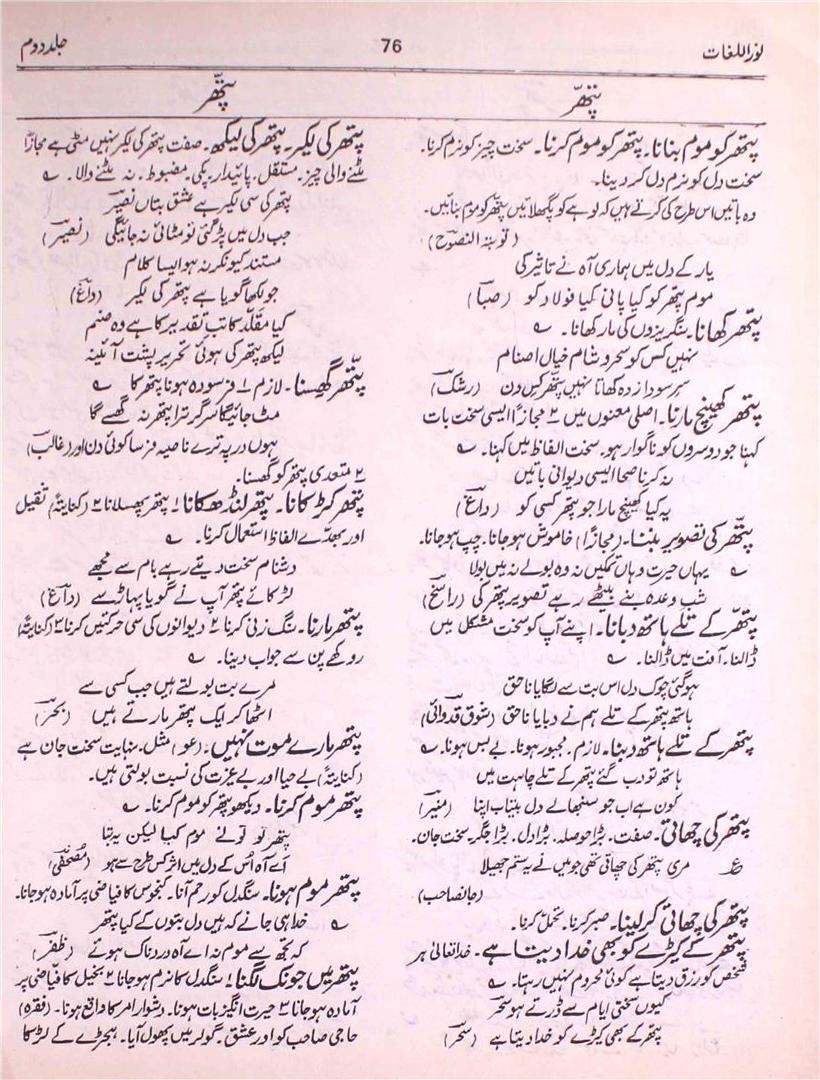 نوراللغات
76
جلد دوم
پتھّر
پتھّر
پتھر کو موم بنانا۔ پتھر کو موم کرنا۔ سخت چیز کو نرم کرنا۔
سخت دل کو نرم دل کر دینا۔
وہ باتیں اس طرح کی کرتے ہیں کہ لوہے کو پگھلائیں پتھر کو موم بنائیں۔
(توبتہ النصوح)
یار کے دل میں ہماری آہ نے تاثیر کی
موم پتھر کو کیا پانی کیا فولاد کو (صبا)
پتھر کھانا۔ سنگریزوں کی مار کھانا۔ ؎
نہیں کس کو سحر و شام خیال اصنام
سرِ سودا زدہ کھاتا نہیں پتھر کس دن (رشک)
پتھر کھینچ مارنا۔ اصلی معنوں میں ۲ مجازاً ایسی سخت بات
کہنا جو دوسروں کو ناگوار ہو۔ سخت الفاظ میں کہنا۔ ؎
نہ کرنا صحا ایسی دیوانی باتیں
یہ کیا کھینچ مارا جو پتھر کسی کو (داغ)
پتھر کی تصویر بننا۔ (مجازاً) خاموش ہو جانا۔ چپ ہو جانا۔
؎ یہاں حیرت وہاں تمکیں نہ وہ بولے نہ میں بولا
شب وعدہ بنے بیٹھے رہے تصویر پتھر کی (راسخ)
پتھر کے تلے ہاتھ دبانا۔ اپنے آپ کو سخت مشکل میں
ڈالنا۔ آفت میں ڈالنا۔ ؎
ہو گئی چوک دل اس بت سے لگایا ناحق
ہاتھ پتھر کے تلے ہم نے دبایا ناحق (شوق قدوائی)
پتھر کے تلے ہاتھ دبنا۔ لازم۔ مجبور ہونا۔ بے بس ہونا۔ ؎
ہاتھ تو دب گئے پتھر کے تلے چاہت میں
کون ہے اب جو سنبھالے دل بیتاب اپنا (منیر)
پتھر کی چھاتی۔ صفت۔ بڑا حوصلہ۔ بڑا دل۔ بڑا جگر۔ سخت جان۔
ع مری پتھر کی چھاتی تھی جو میں نے یہ ستم جھیلا
(جانصاحب)
پتھر کی چھاتی کر لینا۔ صبر کرنا۔ تحمل کرنا۔
پتھر کے کیڑے کو بھی خدا دیتا ہے۔ خدا تعالیٰ ہر
شخص کو رزق دیتا ہے کوئی محروم نہیں رہتا۔ ؎
کیوں سختی ایام سے ڈرتے ہو سحر
پتھر کے بھی کیڑے کو خدا دیتا ہے (سحر)
پتھر کی لیکر۔ پتھر کی لیکھ۔ صفت پتھر کی لیکر نہیں مٹتی ہے مجازاً
مٹنے والی چیز۔ مستقل۔ پائیدار۔ پکی۔ مضبوط۔ نہ مٹنے والا۔ ؎
پتھر کی سی لکیر ہے عشق بتاں نصیر
جب دل میں پڑ گئی تو مٹائی نہ جائیگی (نصیر)
مستند کیونکر نہ ہو ایسا کلام
جو لکھا گویا ہے پتھر کی لکیر (داغ)
کیا مقلد کاتب تقدیر کا ہے وہ صنم
لیکھ پتھر کی ہوئی تحریر پشت آئینہ
پتھر گھسنا۔ لازم ۱ فرسودہ ہونا پتھر کا ؎
مٹ جائیگا سر گر ترا پتھر نہ گھسے گا
ہوں در پہ ترے ناصیہ فرسا کوئی دن اور (غالب)
۲ متعدی پتھر کو گھسنا۔
پتھر لڑکانا۔ پتھر لنڈھکانا ۱ پتھر پھسلانا ۲ (کنایتہً) ثقیل
اور بھدّے الفاظ استعمال کرنا۔ ؎
دشنام سخت دیتے رہے بام سے مجھے
لڑکائے پتھر آپ نے گویا پہاڑ سے (داغ)
پتھر مارنا۔ سنگ زنی کرنا ۲ دیوانوں کی سی حرکتیں کرنا ۳ (کنایتہً)
روکھے پن سے جواب دینا۔ ؎
مرے بت بولتے ہیں جب کسی سے
اٹھا کر ایک پتھر مارتے ہیں (بحر)
پتھر مارے موت نہیں۔ (عو) مثل۔ نہایت سخت جان ہے
(کنایتہً) بے حیا اور بے عزت کی نسبت بولتی ہیں۔
پتھر موم کرنا۔ دیکھو پتھر کو موم کرنا۔ ؎
پتھر تو تو نے موم کیا لیکن یہ بتا
اے آہ اُس کے دل میں اثر کس طرح سے ہو (مصحفی)
پتھر موم ہونا۔ سنگدل کو رحم آنا۔ کنجوس کا فیاضی پر آمادہ ہو جانا۔
؎ خدا ہی جانے کہ ہیں دل بتوں کے کیا پتھر
کہ تجھ سے موم نہ اے آہ دردناک ہوئے (ظفر)
پتھر میں جونک لگنا ۱ سنگدل کا نرم ہو جانا ۲ بخیل کا فیاضی پر
آمادہ ہو جانا ۳ حیرت انگیز بات ہونا۔ دشوار امر کا واقع ہونا۔ (فقرہ)
حاجی صاحب کو اور عشق۔ گولر میں پھول آیا۔ ہیجڑے کے لڑکا